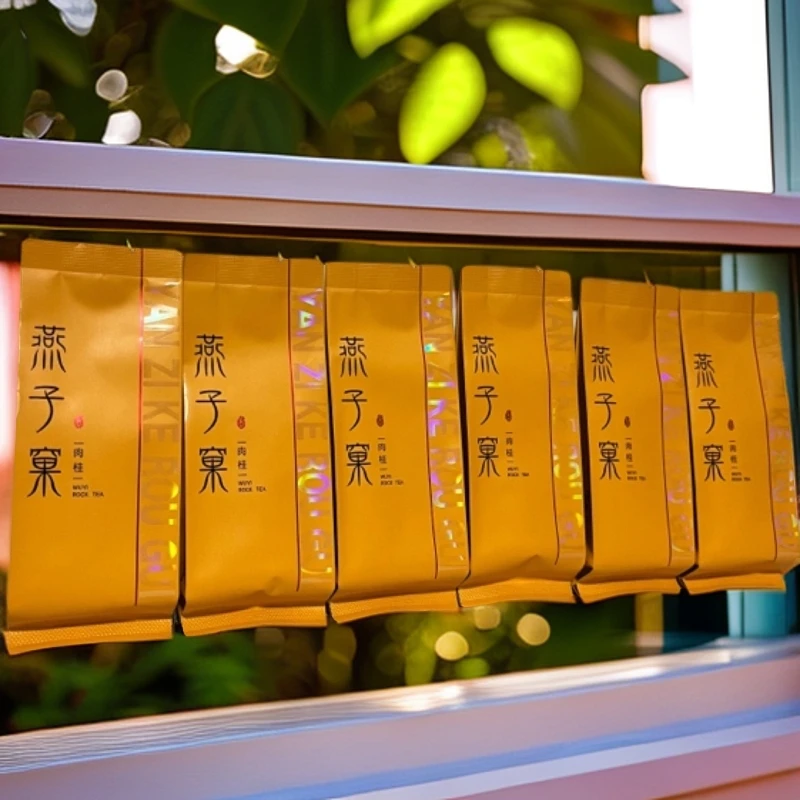 燕子窠
肉桂
WUYI
ROCK TEA
YAN ZI KE ROU GU
燕子窠
肉桂
WUYI
ROCK TEA
YAN ZI KE ROU GU
燕子窠
肉桂
WUYI
ROCK TEA
YAN ZI KE ROU G
燕子窠
肉桂
WUYI
ROCK TEA
燕子窠
肉桂
WUYI
ROCK TEA
燕子窠
肉桂
WUYI
ROCK TEA